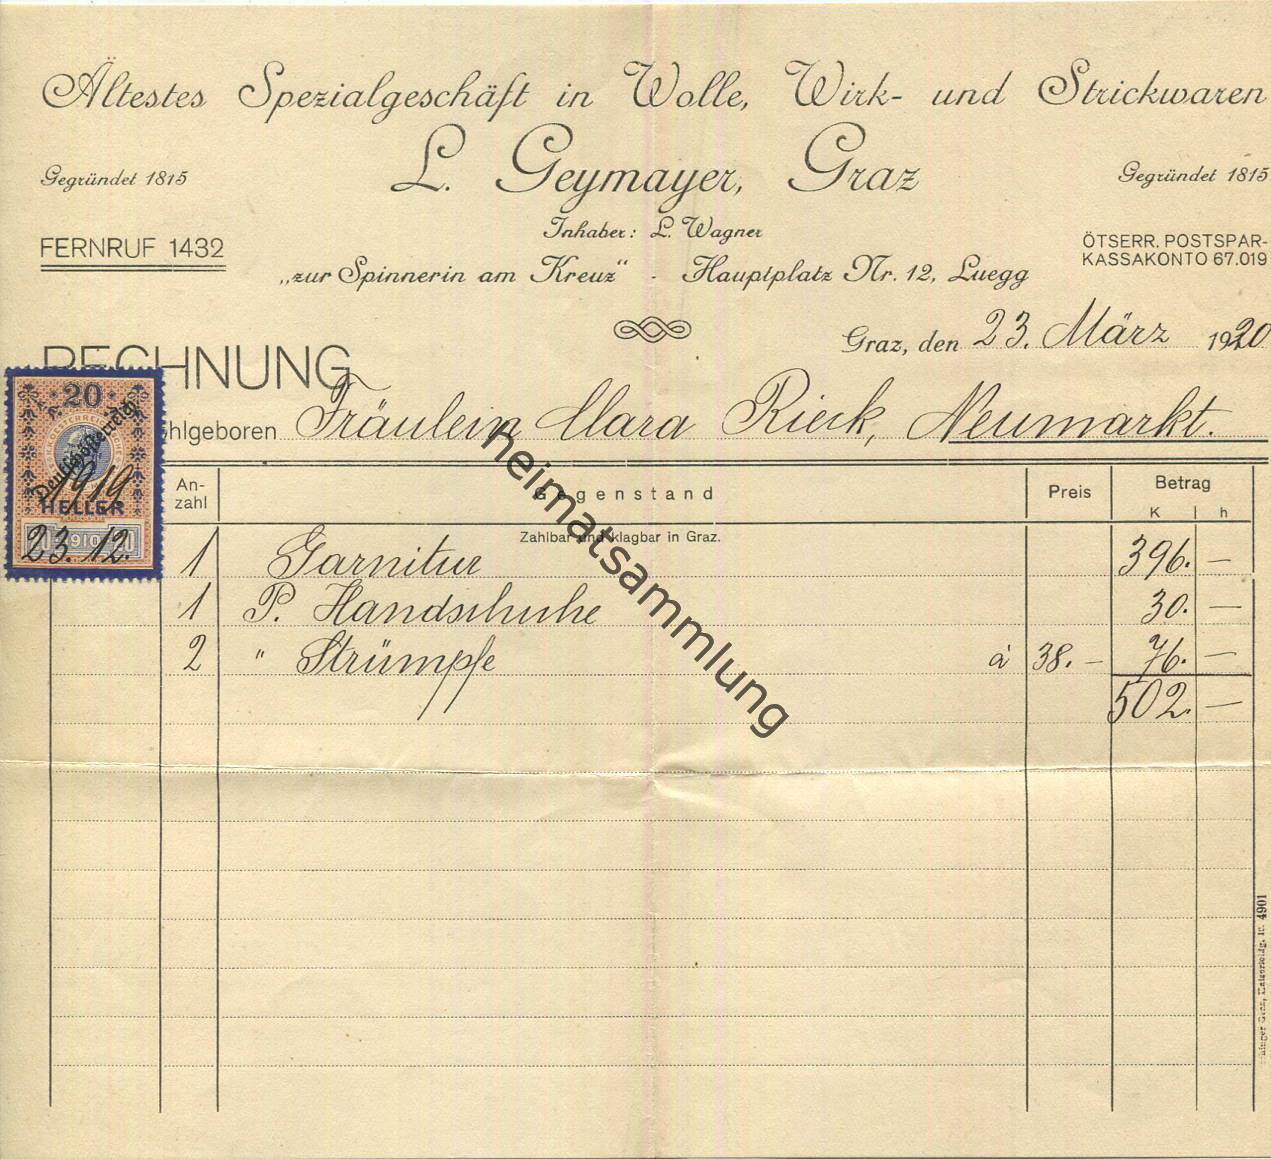 Ältestes Spezialgeschäft in Wolle, Wirk- und Strickwaren
L. Geymayer, Graz
Gegründet 1815
Gegründet 1815
Inhaber: L. Wagner
FERNRUF 1432
ÖTSERR. POSTSPAR-
KASSAKONTO 67.019
„zur Spinnerin am Kreuz" - Hauptplatz Nr. 12, Luegg
Graz, den 23. März 1920
RECHNUNG
hlgeboren Fräulein Clara Rieck, Neumarkt.
20
Deutschösterreich
1919
HELLER
1910
23. 12.
An-
zahl
Gegenstand
Preis
Betrag
K h
Zahlbar und klagbar in Graz.
1 Garnitur 396. —
1 P. Handschuhe 30. —
2 " Strümpfe à 38. — 76. —
502. —
heimatsammlung
4901